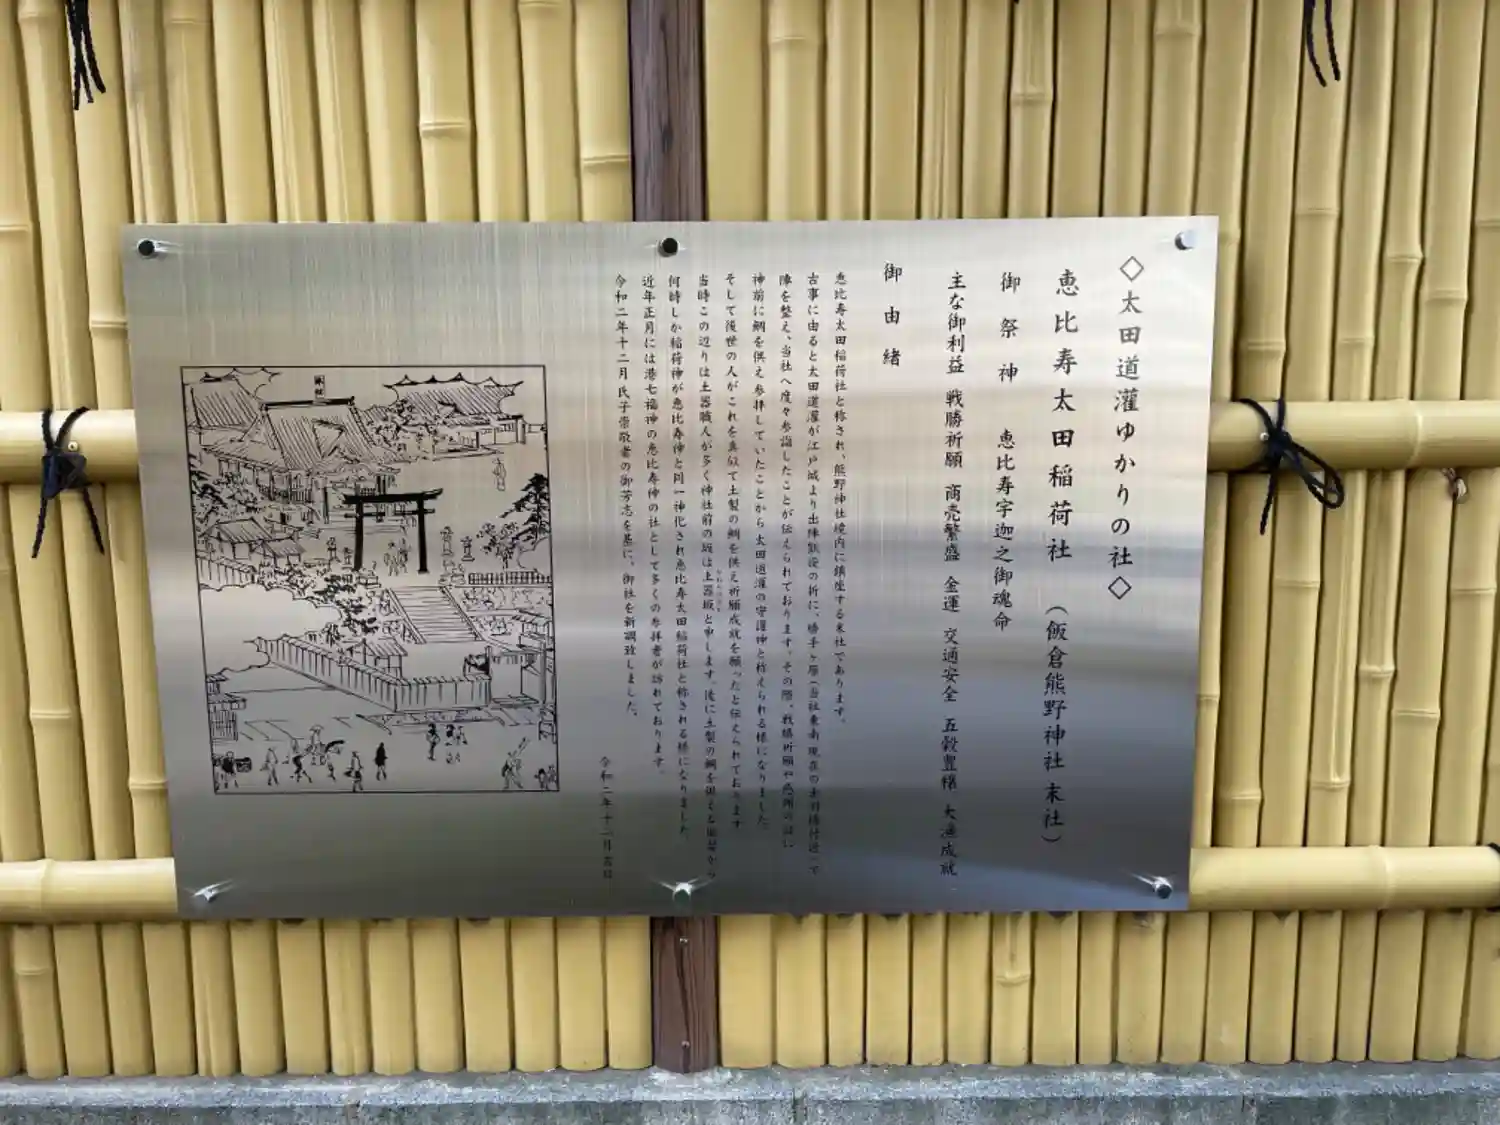 ◇太田道灌ゆかりの社◇
恵比寿太田稲荷社 (飯倉熊野神社 末社)
御祭神 恵比寿宇迦之御魂命
主な御利益 戦勝祈願 商売繁盛 金運 交通安全 五穀豊穣 大漁成就
御由緒
恵比寿太田稲荷社と称され、熊野神社境内に鎮座する末社であります。
古事に由ると太田道灌が江戸城より出陣の折に、勝手ヶ原(当社東南 現在の
陣を整え、当社へ度々参詣したことが伝えられております。その際、戦勝祈願や
神前に鯛を供え参拝していたことから太田道灌の守護神と称えられる様になりました。
そして後世の人がこれを真似て土製の鯛を供え祈願成就を願ったと伝えられております
当時この辺りは土器職人が多く神社前の坂は土器坂と申します。後に土製の鯛を供える
何時しか稲荷神が恵比寿神と同一神化され恵比寿太田稲荷社と称される様になりました
近年正月には港七福神の恵比寿神の社として多くの参拝者が訪れております。
令和二年十二月氏子崇敬者の御芳志を基に、御社を新調致しました。
令和二年十二月吉日